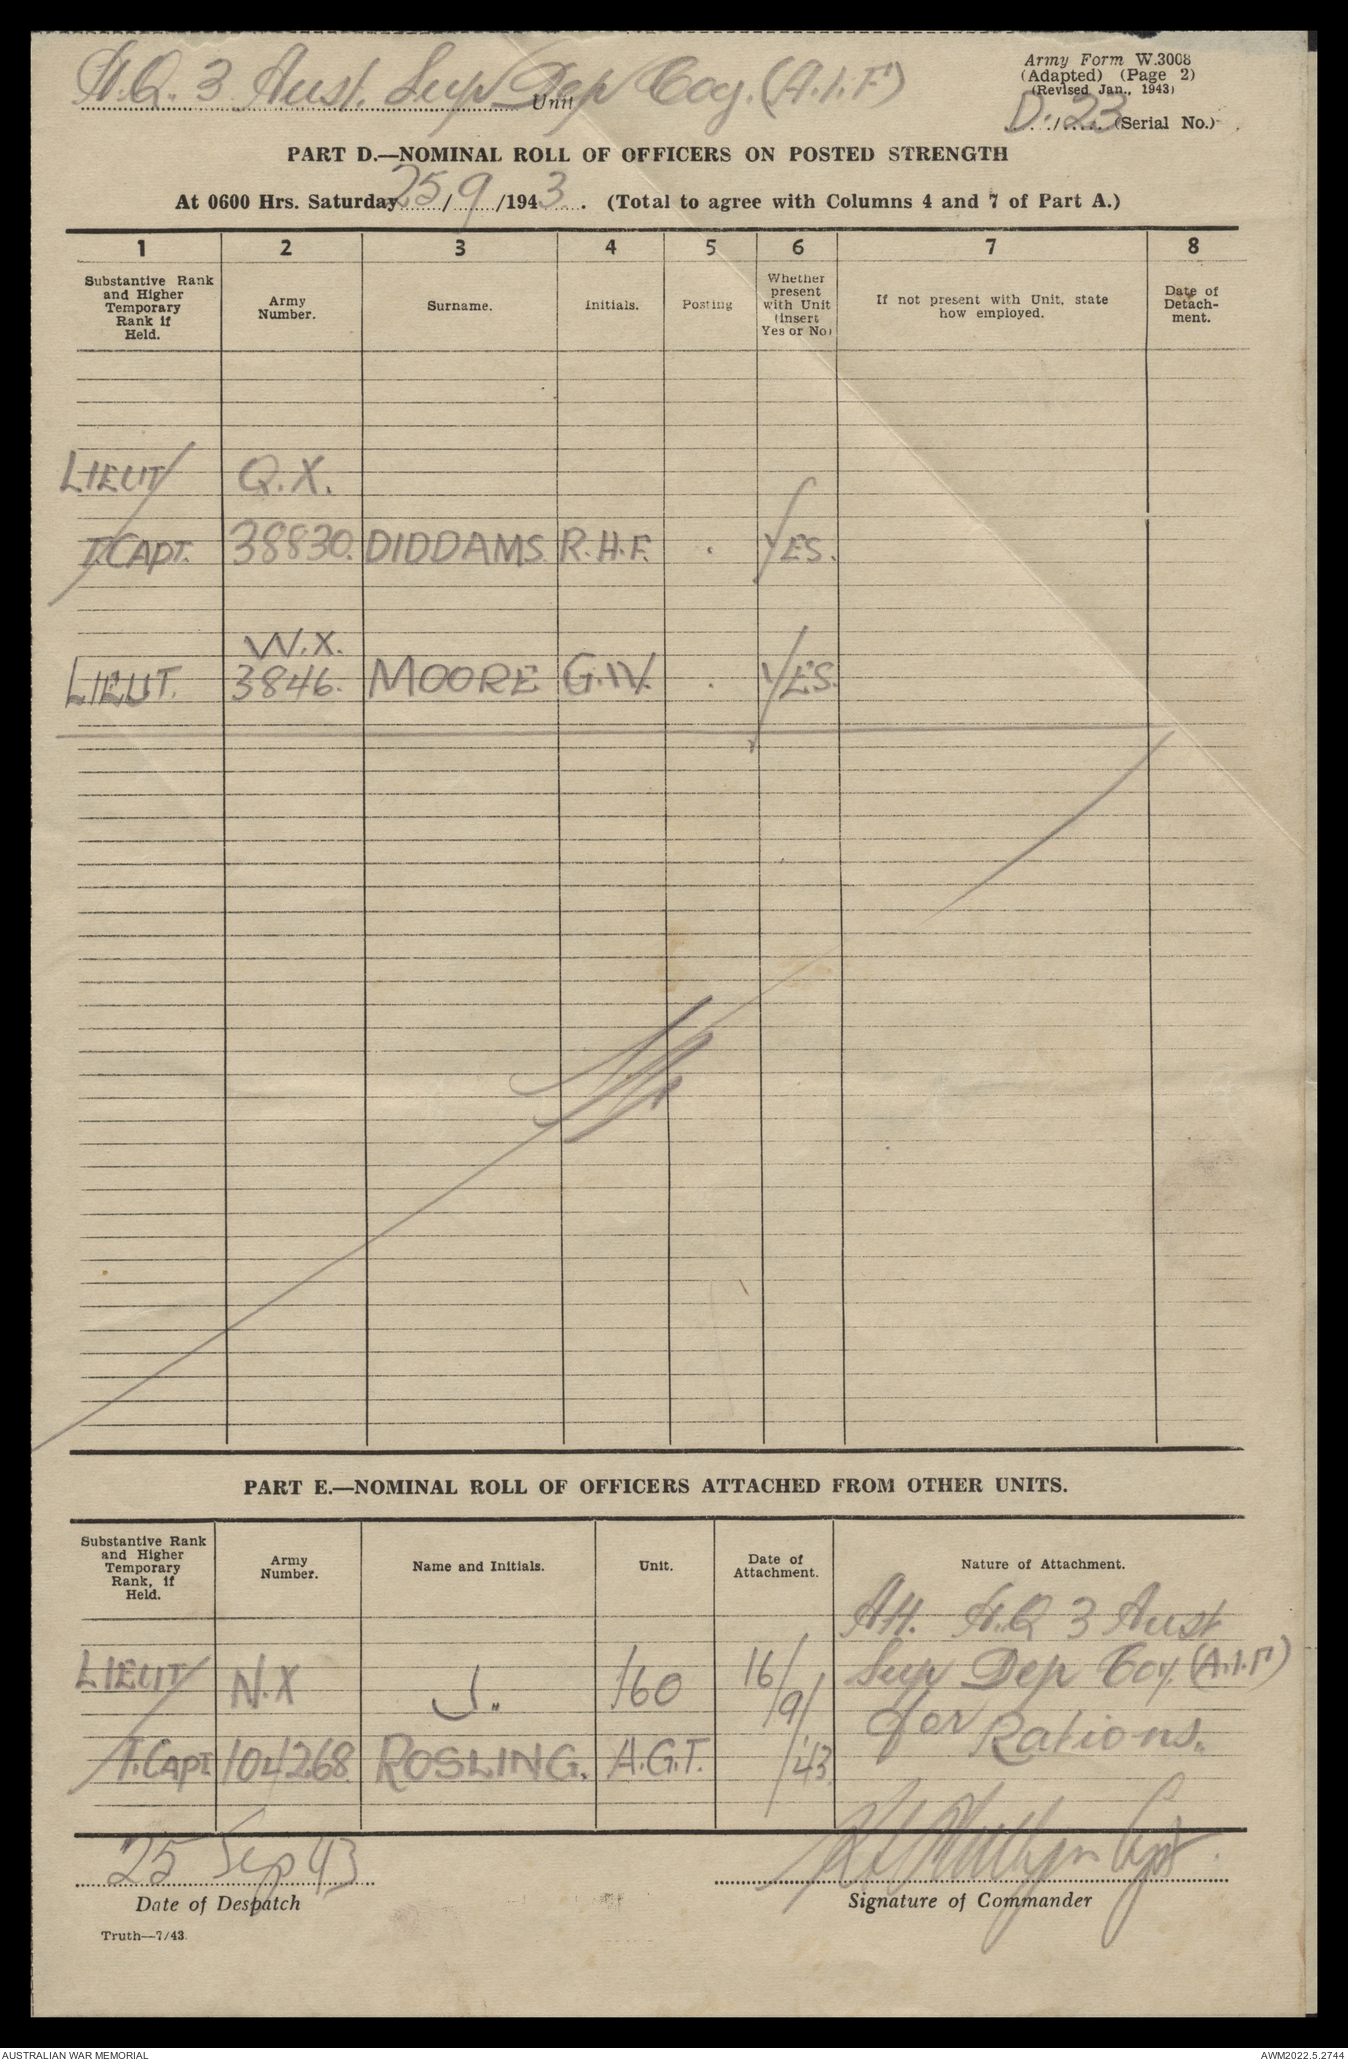 H.Q. 3 Aust. Sup Dep Coy. (A.I.F) Unit
Army Form W.3008
(Adapted) (Page 2)
(Revised Jan., 1943)
D. 23 (Serial No.)
PART D.—NOMINAL ROLL OF OFFICERS ON POSTED STRENGTH
At 0600 Hrs. Saturday 25/9/1943. (Total to agree with Columns 4 and 7 of Part A.)
1 2 3 4 5 6 7 8
Substantive Rank and Higher Temporary Rank if Held.
Army Number.
Surname.
Initials.
Posting
Whether present with Unit (insert Yes or No)
If not present with Unit, state how employed.
Date of Detach-ment.
LIEUT/ Q.X.
T.CAPT. 38830. DIDDAMS. R.H.F. . YES.
W.X.
LIEUT. 3846. MOORE G.W. . YES.
PART E.—NOMINAL ROLL OF OFFICERS ATTACHED FROM OTHER UNITS.
Substantive Rank and Higher Temporary Rank, if Held.
Army Number.
Name and Initials.
Unit.
Date of Attachment.
Nature of Attachment.
Att. H.Q 3 Aust
LIEUT/ N.X J. 160 16/9/ Sup Dep Coy. (A.I.F)
for Rations.
T.CAPT 104268. ROSLING. A.G.T. /43.
25 Sep 43
Capt.
Date of Despatch
Signature of Commander
Truth—7/43.
AUSTRALIAN WAR MEMORIAL
AWM2022.5.2744